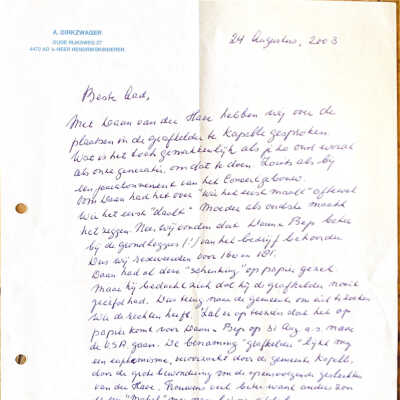 A. DIRKZWAGER
OUDE RIJKSWEG 27
4472 AD 's-HEER HENDRIKSKINDEREN
24 Augustus, 2003
Beste Aad,
Met Daan van der Have hebben wij over de
plaatsen in de grafkelder te Kapelle gesproken.
Wat is het toch gemakkelijk als je zo oud wordt
als onze generatie, om dat te doen. Zoiets als bij
een jaarabonnement van het Concertgebouw.
Oom Daan had het over "wie het eerst maalt" oftewel
wie het eerst "daalt". Moeder als oudste mocht
het zeggen. Nee wij vonden dat Daan en Bep beter
bij de grondleggers (!) van het bedrijf behoorden
Dus wij reserveren voor 160 en 181.
Daan had al deze "schenking" op papier gezet.
Maar hij bedacht zich dat hij de grafkelder nooit
geërfd had. Dus terug naar de gemeente om uit te zoeken
wie de rechten heeft. Zal er op toezien dat het op
papier komt voor Daan en Bep op 31 Aug. a.s. naar
de USA gaan. De benaming "grafkelder" lijkt mij
een euphemisme, veroorzaakt door de gemeente Kapelle,
door de grote bewondering van de opeenvolgende geslachten
van der Have. Trouwens veel beter want anders zou